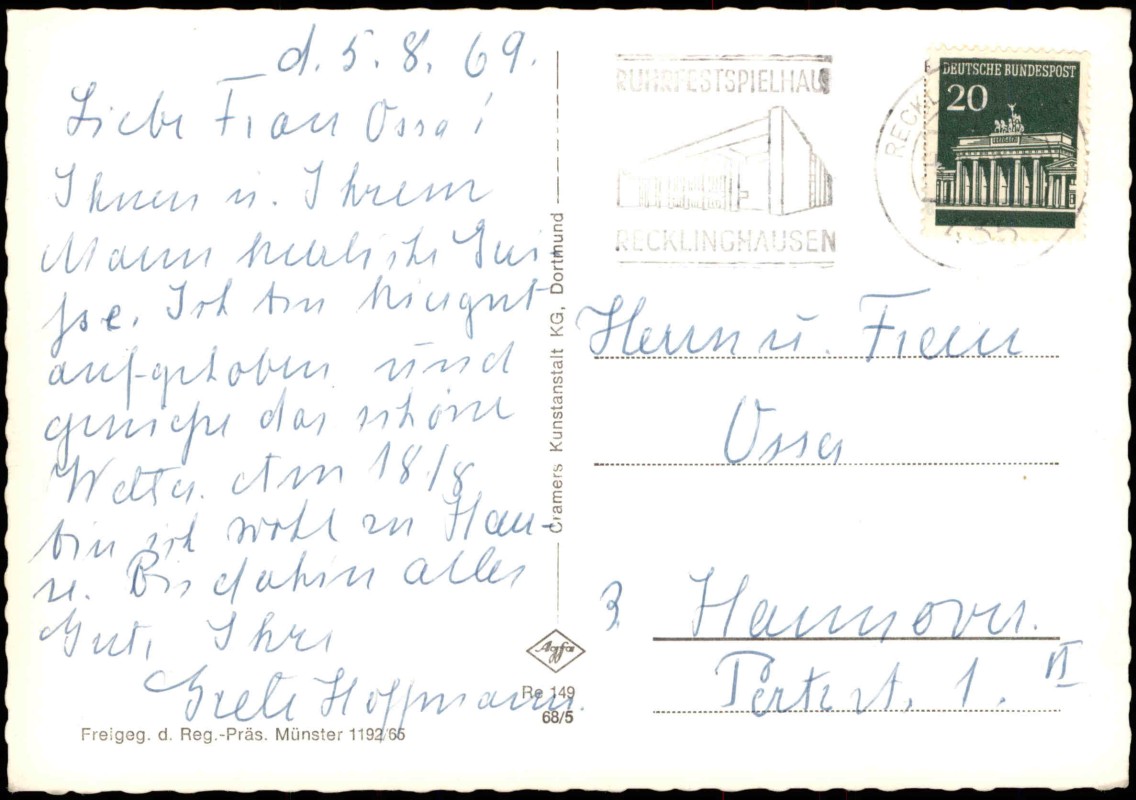 d. 5. 8. 69.
Liebe Frau Ossa!
Ihnen u. Ihrem
Mann herzliche Grü-
sse. Ich bin hier gut
aufgehoben und
genieße das schöne
Wetter. Am 18/8
bin ich wohl zu Hau-
se. Bis dahin alles
Gute, Ihre
Grete Hoffmann.
Freigeg. d. Reg.-Präs. Münster 1192/65
Cramers Kunstanstalt KG, Dortmund
Agfa
Re 149
68/5
RUHRFESTSPIELHAUS
RECKLINGHAUSEN
RECKL
435
DEUTSCHE BUNDESPOST
20
Herrn u. Frau
Ossa
3 Hannover.
1. VI